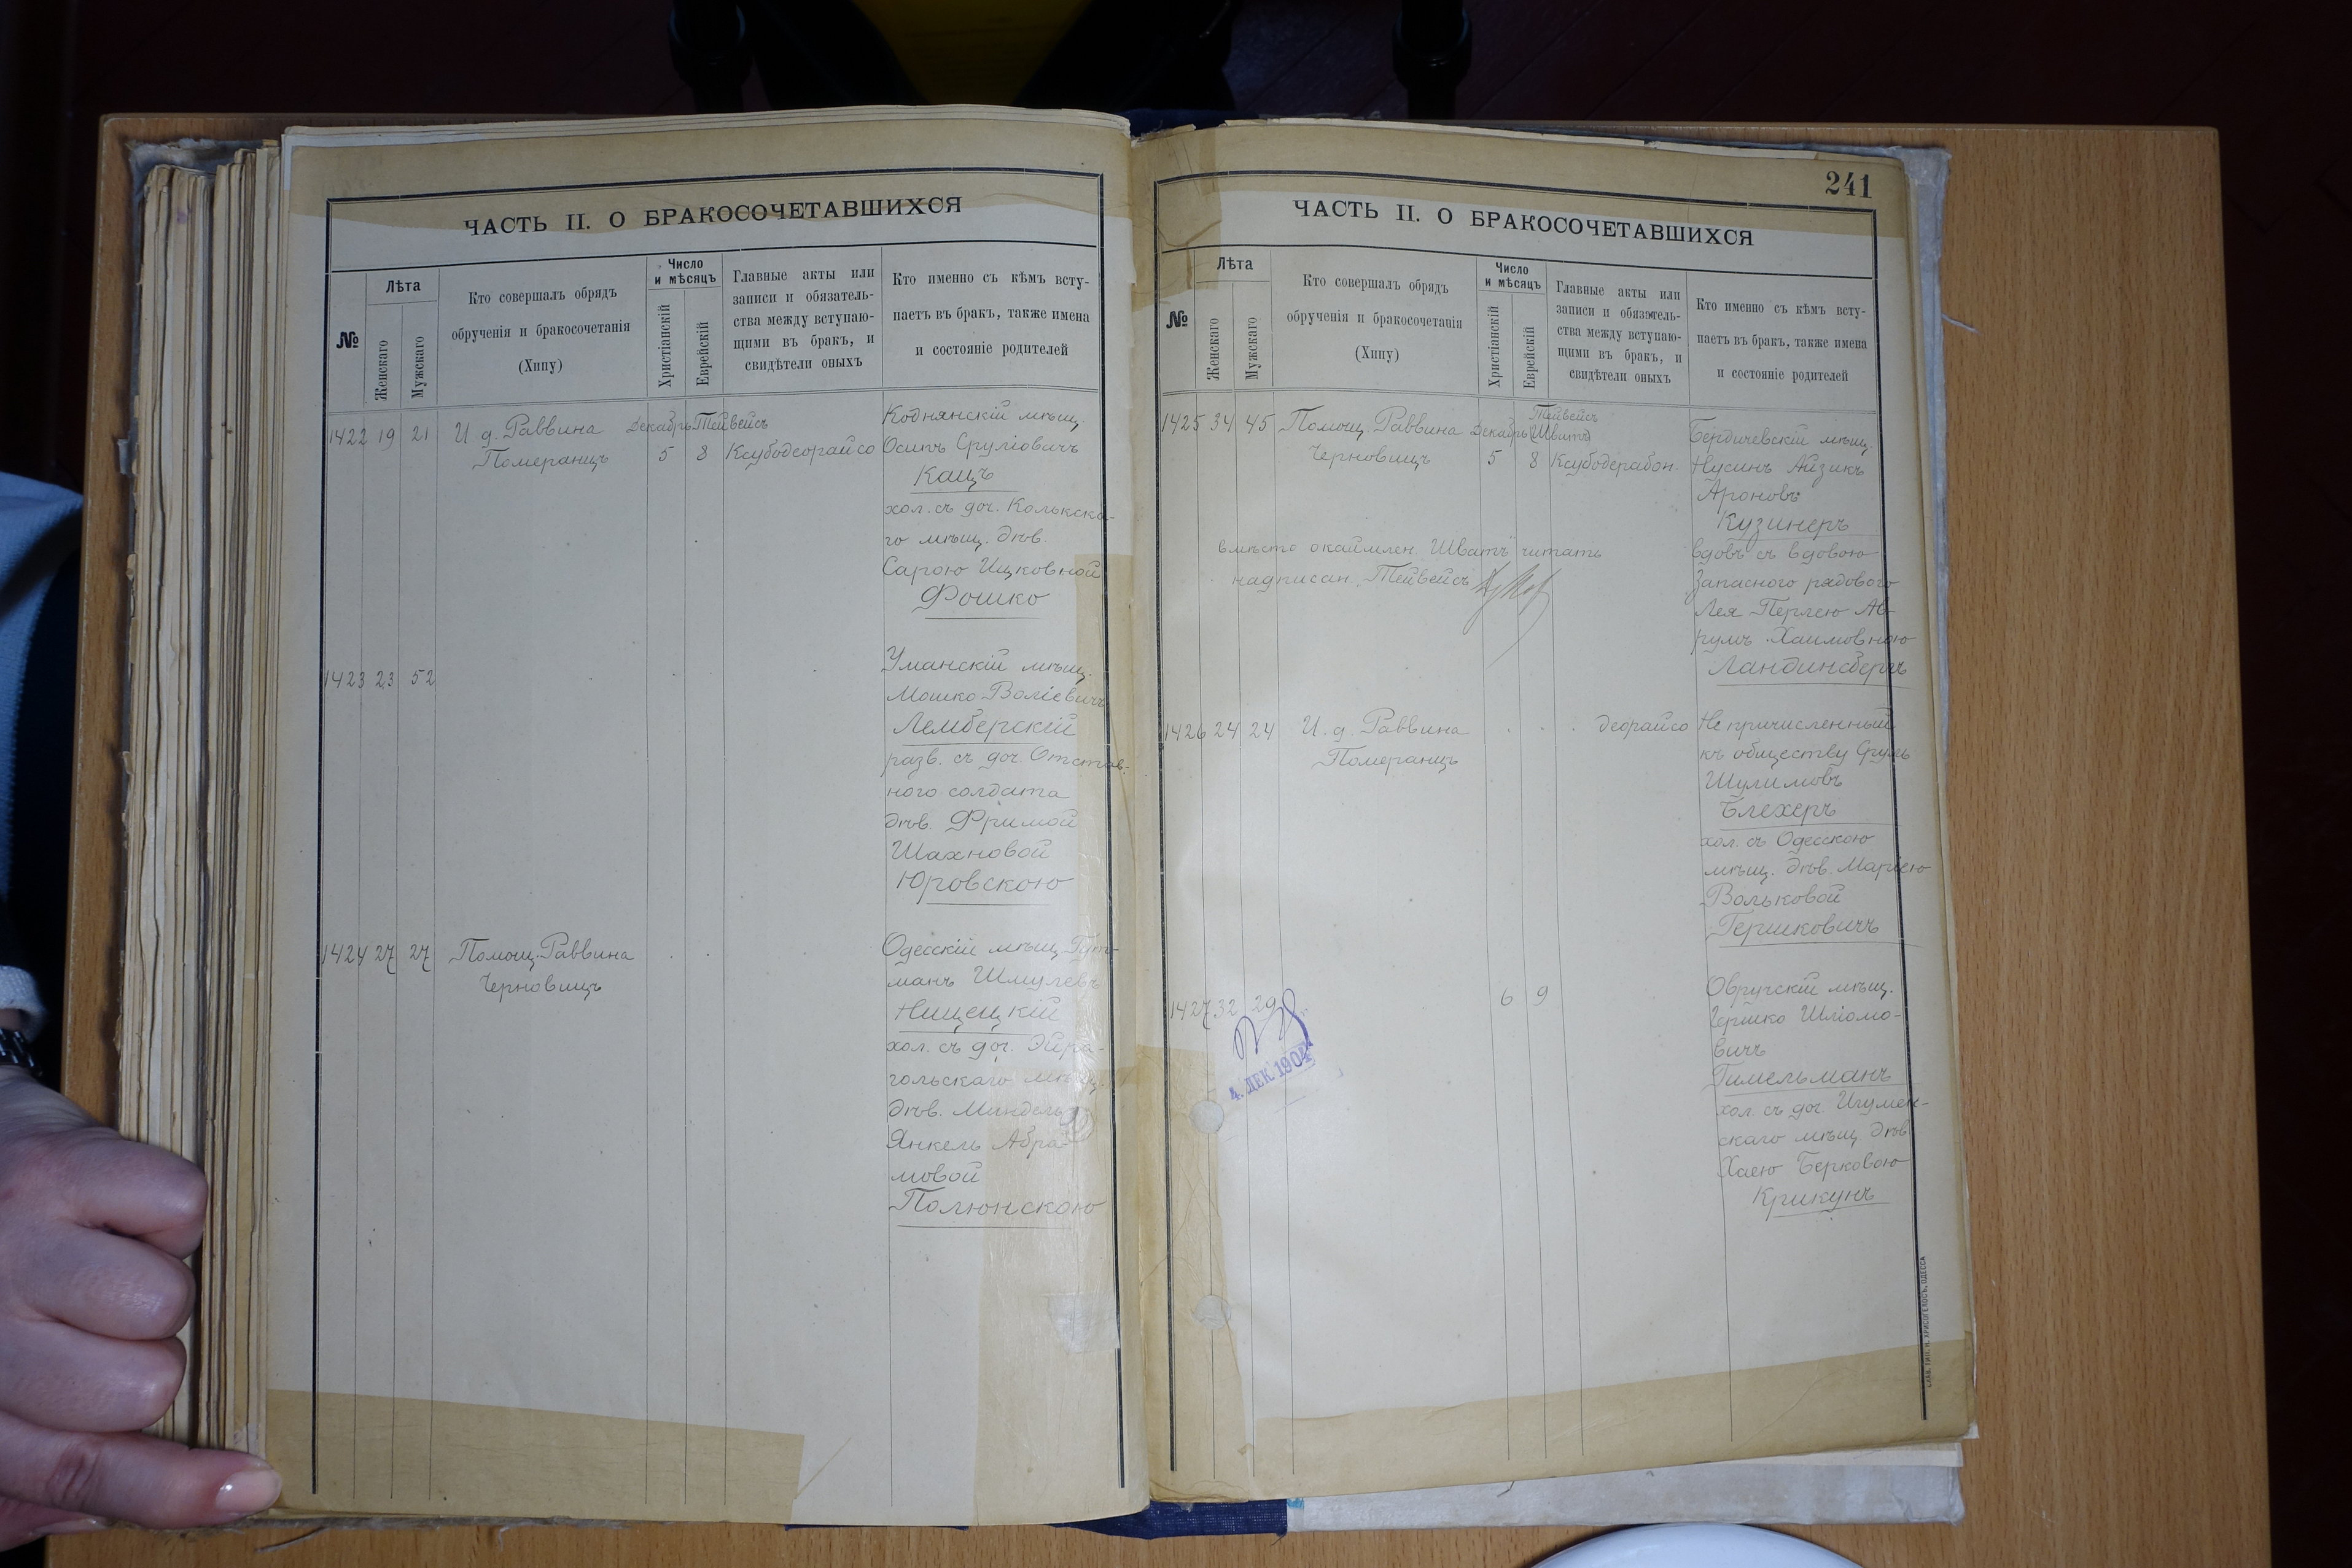 ЧАСТЬ II. О БРАКОСОЧЕТАВШИХСЯ
№
Лѣта
Женскаго
Мужскаго
Кто совершалъ обрядъ
обрученія и бракосочетанія
(Хипу)
Число
и мѣсяцъ
Христіанскій
Еврейскій
Главные акты или
записи и обязатель-
ства между вступаю-
щими въ бракъ, и
свидѣтели оныхъ
Кто именно съ кѣмъ всту-
паетъ въ бракъ, также имена
и состояніе родителей
1422 19 21 И. д. Раввина Декабрь Тейвейсъ
Померанцъ 5 8 Ксубодеорайсо
Коднянскій мѣщ.
Осипъ Сруліовичъ
Кацъ
хол. съ доч. Колькска-
го мѣщ. дѣв.
Сарою Ицковной
Фошко
1423 23 52
Уманскій мѣщ.
Мошко Воліевичъ
Лемберскій
разв. съ доч. Отстав-
ного солдата
дѣв. Фримой
Шахновой
Юровскою
1424 27 27 Помощ. Раввина
Черновицъ
Одесскій мѣщ. Гут-
манъ Шмулевъ
Нищецкій
хол. съ доч. Эйра-
гольскаго мѣщ.
дѣв. Миндель
Янкель Абра-
мовой
Полюнскою
241
ЧАСТЬ II. О БРАКОСОЧЕТАВШИХСЯ
№
Лѣта
Женскаго
Мужскаго
Кто совершалъ обрядъ
обрученія и бракосочетанія
(Хипу)
Число
и мѣсяцъ
Христіанскій
Еврейскій
Главные акты или
записи и обязатель-
ства между вступаю-
щими въ бракъ, и
свидѣтели оныхъ
Кто именно съ кѣмъ всту-
паетъ въ бракъ, также имена
и состояніе родителей
Тейвейсъ
1425 34 45 Помощ. Раввина Декабрь Шватъ
Черновицъ 5 8 Ксубодерабон.
Бердичевскій мѣщ.
Нусинъ Айзикъ
Ароновъ
Кузинеръ
вдовъ съ вдовою
Запасного рядового
Лея Перлею Ав-
румъ Хаимовною
Ландинсбергъ
вмѣсто окаймлен. Шватъ читать
надписан. Тейвейсъ
1426 24 24 И. д. Раввина деорайсо
Померанцъ
Не причисленный
къ обществу Сруль
Шулимовъ
Блехеръ
хол. съ Одесскою
мѣщ. дѣв. Маріею
Вольковой
Гершковичъ
1427 32 29 6 9
Овручскій мѣщ.
Гершко Шліомо-
вичъ
Гимельманъ
хол. съ доч. Игумен-
скаго мѣщ. дѣв.
Хаею Берковою
Крикунъ
4. ДЕК 1904